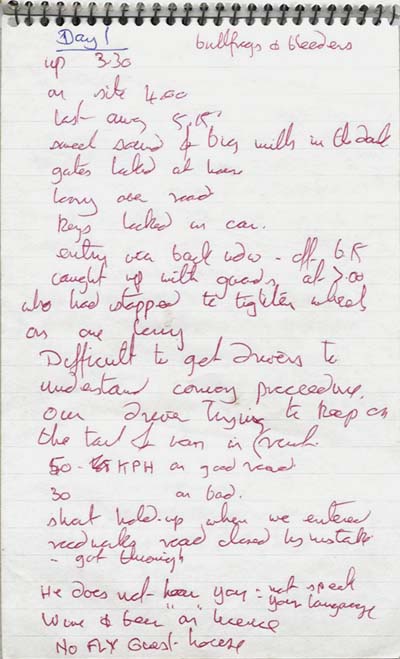 Day 1
bullfrogs & bleeders
up 3.30
on site 4.00
last away 5.15
sweet sound of big mills in the dark
gates locked at house
lorry over road
Keys locked in car.
entry via back window - off 6.15
caught up with goods at 7.00
who had stopped to tighten wheels
on one lorry
Difficult to get drivers to
understand convoy proceeding.
Our driver trying to keep on
the tail of van in front.
50 - KPH on good road
30 on bad.
short hold-up when we entered
road closed by mistake
- got through
He does not hear you = not speak
your language
Wine & beer "on" licence
No FLY Guest-house